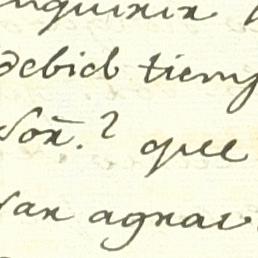 nquirir
debid tiemp
Soñ.? que
san agnav